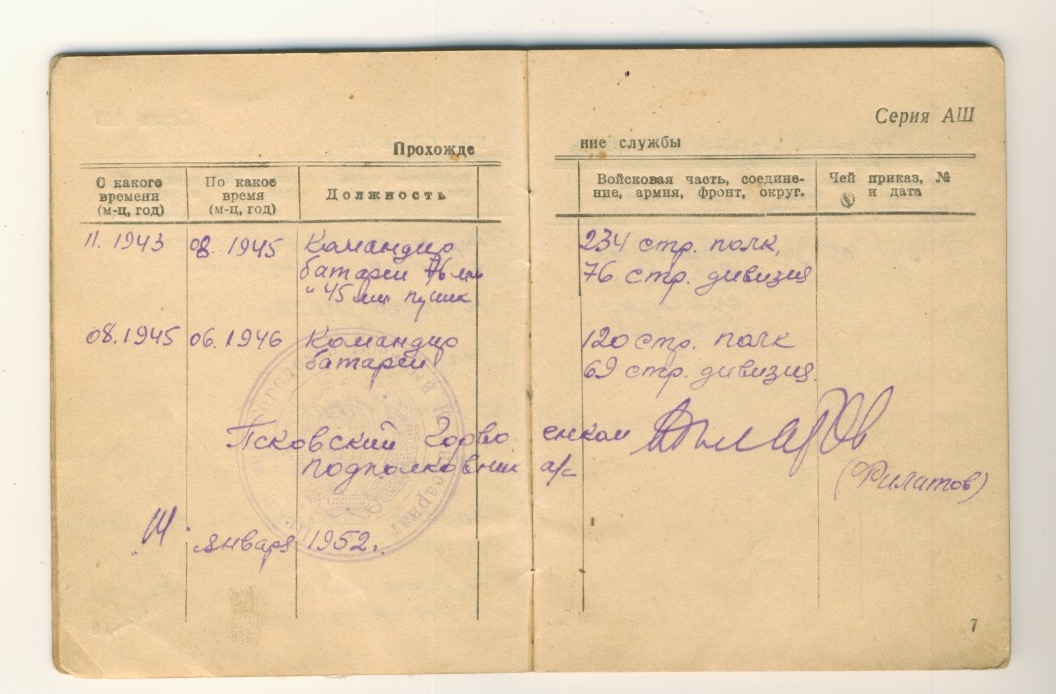 Серия АШ
Прохождение службы
С какого времени (м-ц, год)
По какое время (м-ц, год)
Должность
Войсковая часть, соединение, армия, фронт, округ.
Чей приказ, № и дата
11. 1943 08. 1945 Командир 234 стр. полк,
батареи 76 мм 76 стр. дивизия
и 45 мм пушек
08.1945 06.1946 Командир 120 стр. полк
батареи 69 стр. дивизия.
Псковский Горвоенком
подполковник а/с (Филатов)
14 января 1952г.
7